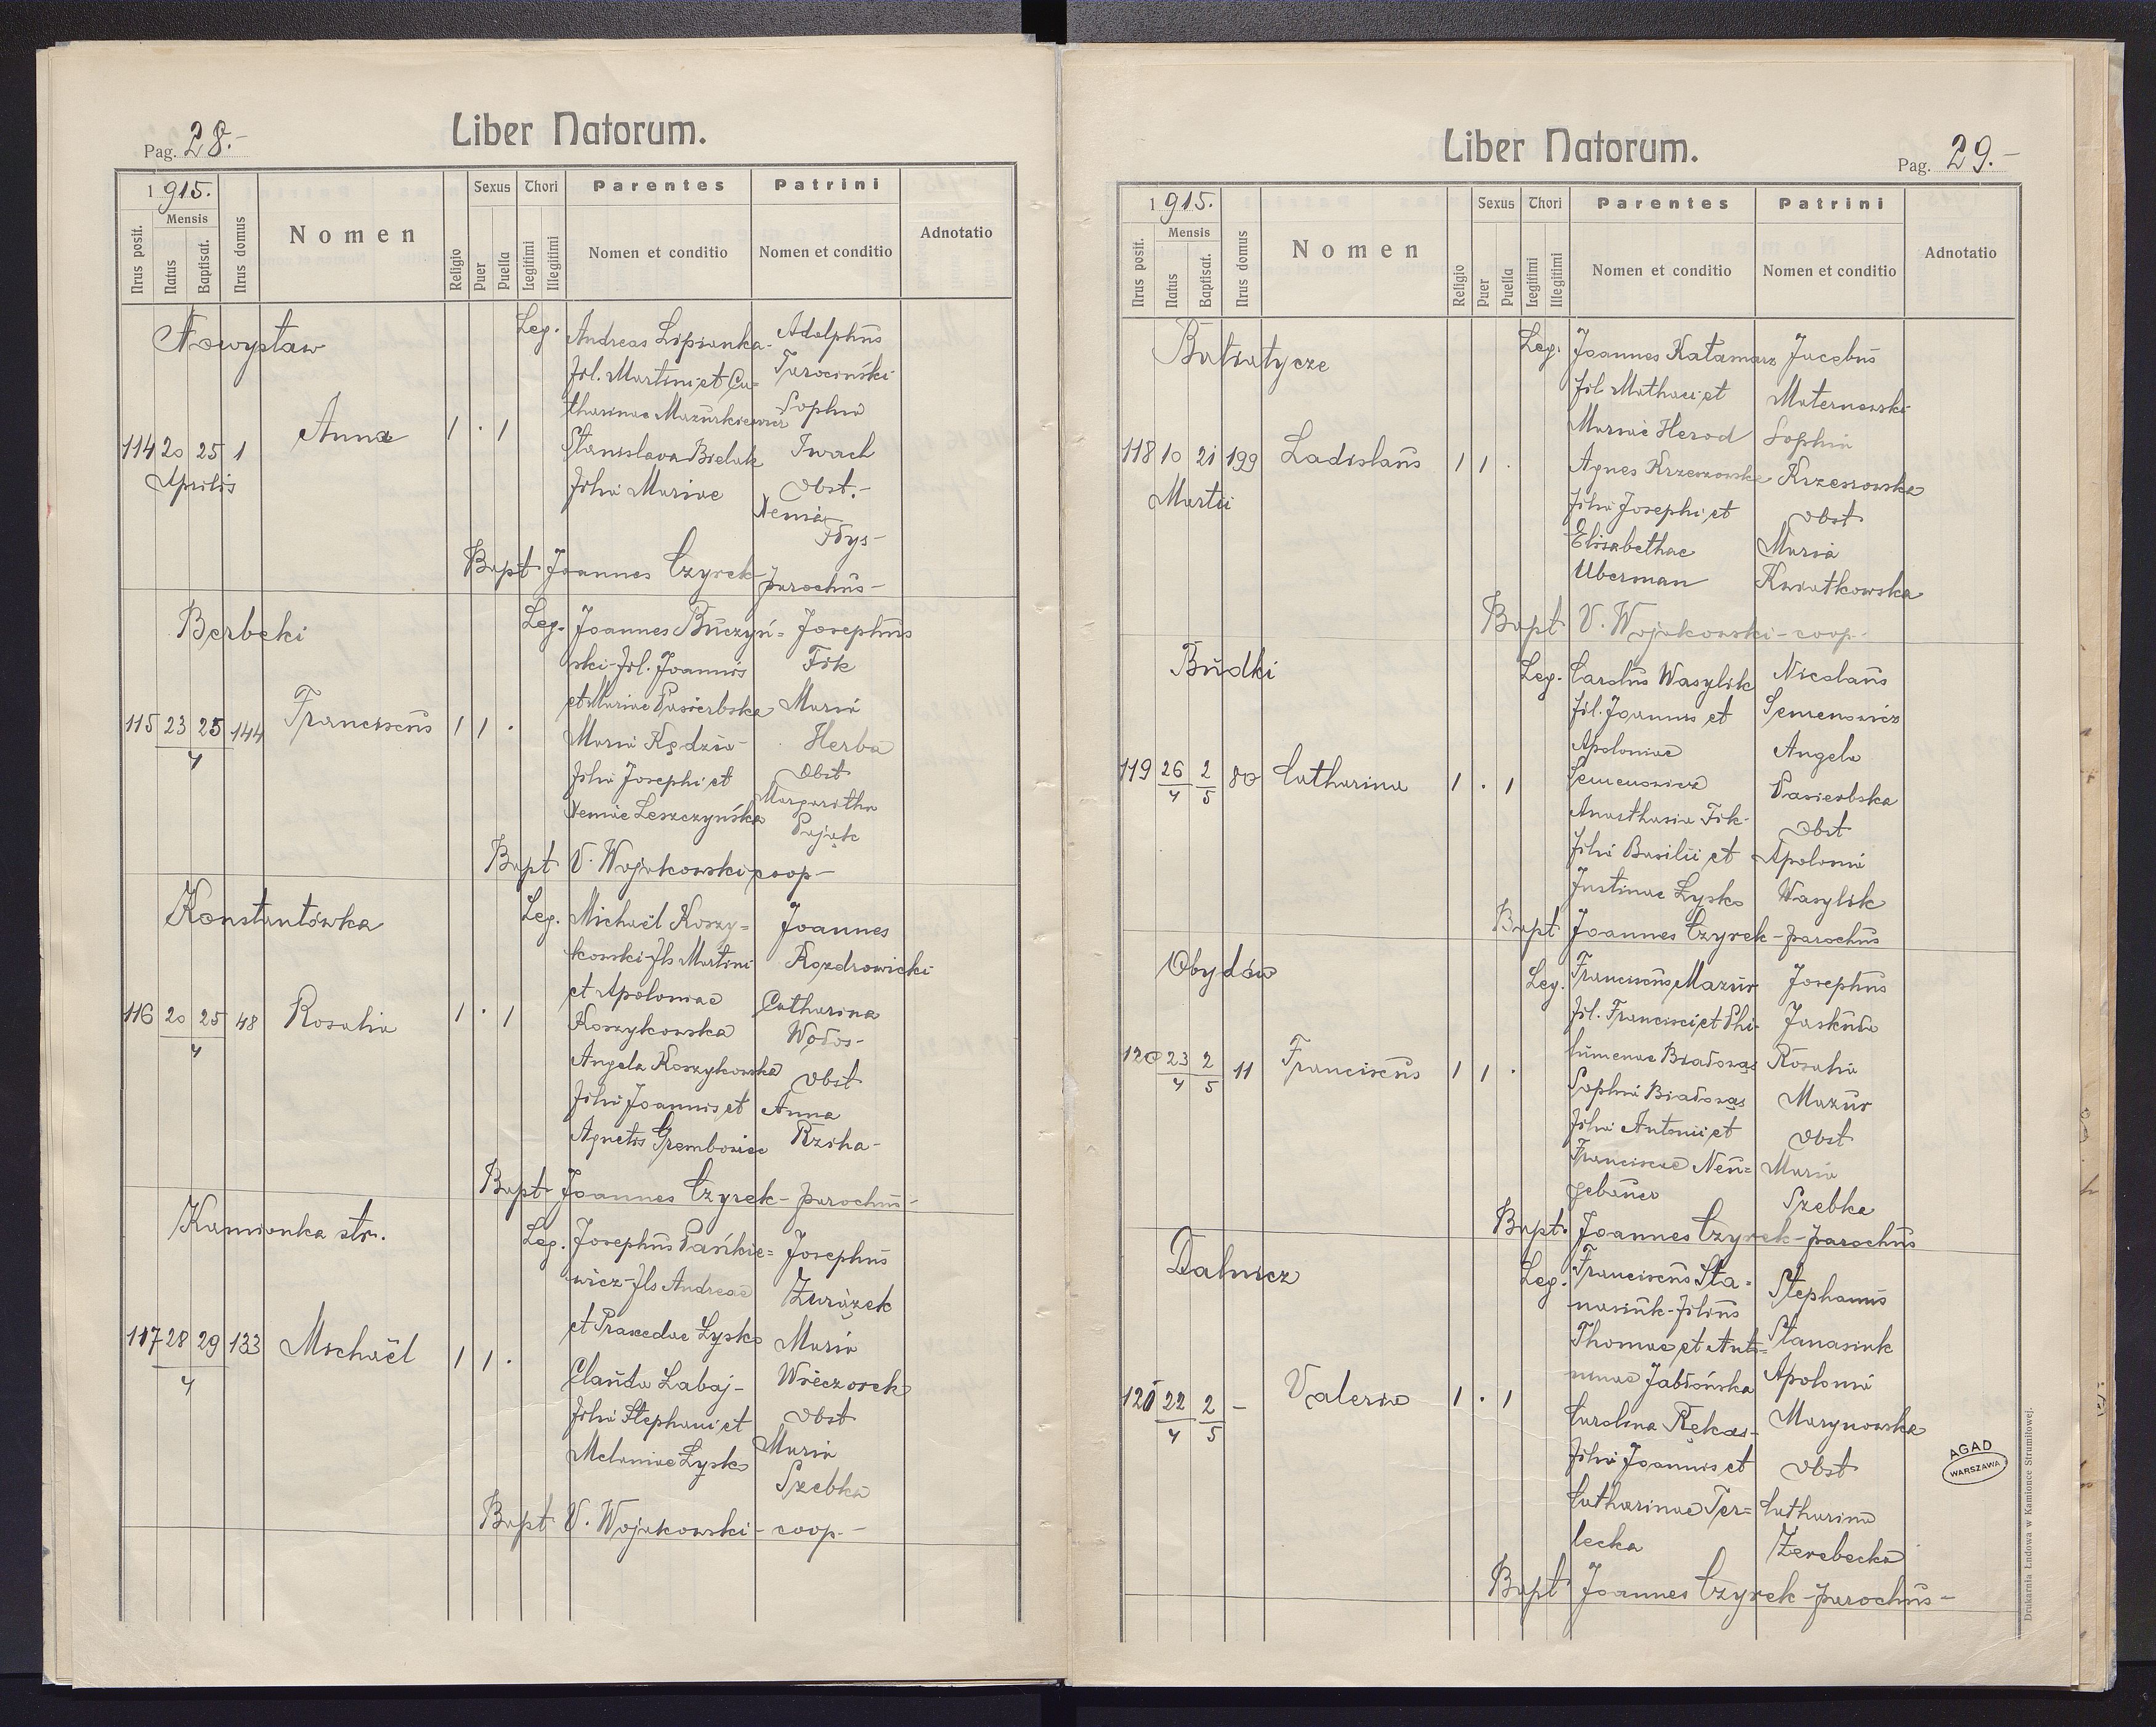 Pag. 28.-
Liber Natorum.
1915.
Nrus posit.
Mensis
Natus
Baptisat.
Nrus domus
Nomen
Religio
Sexus
Puer
Puella
Thori
Legitimi
Illegitimi
Parentes
Nomen et conditio
Patrini
Nomen et conditio
Adnotatio
Nowystaw
114 20 25 1 Anna 1 · 1
Aprilis
Leg.
Andreas Lipianka-
fil. Martini et Ca=
tharinae Mazurkiewicz
Stanislava Bielak
filia Mariae
Adolphus
Jarociński
Sophia
Iwach
Obst.-
Xenia
Dys-
Bapt Joannes Czyrek- parochus-
Berbeki
115 23 25 144 Franciscus 1 1 ·
4
Leg.
Joannes Buczyń=
ski-fil. Joannis
et Mariae Pasierbska
Maria Kędzia-
filia Josephi et
Xeniae Leszczyńska
Josephus
Fik
Maria
Herba
Obst
Margaritha
Pająk
Bapt V. Wojakowski coop-
Konstantówka
116 20 25 48 Rosalia 1 · 1
4
Leg.
Michaël Koszy=
kowski-fls Martini
et Apoloniae
Koszykowska
Angela Koszykowska
filia Joannis et
Agnetis Grembowicz
Joannes
Rozdrowicki
Catharina
Wołos-
Obst
Anna
Rziha-
Bapt Joannes Czyrek- parochus-
Kamionka str.
117 28 29 133 Michaël 1 1 ·
4
Leg.
Josephus Pańkie=
wicz-fls Andreae
et Praxedae Łysko
Clauda Labaj-
filia Stephani et
Melaniae Łysko
Josephus
Żurażek
Maria
Wieczorek
Obst
Maria
Szebka
Bapt V. Wojakowski- coop.-
Liber Natorum.
Pag. 29.-
1915.
Nrus posit.
Mensis
Natus
Baptisat.
Nrus domus
Nomen
Religio
Sexus
Puer
Puella
Thori
Legitimi
Illegitimi
Parentes
Nomen et conditio
Patrini
Nomen et conditio
Adnotatio
Batiatycze
118 10 21 199 Ladislaus 1 1 ·
Martii
Leg.
Joannes Katamarz
fil Mathaei et
Mariae Herod
Agnes Krzeszowska
filia Josephi et
Elisabethae
Uberman
Jacobus
Maternowski
Sophia
Krzeszowska
Obst
Maria
Kwiatkowska
Bapt V. Wojakowski-coop-
Budki
119 26 2 80 Catharina 1 · 1
4 5
Leg.
Carolus Wasylik
fil. Joannis et
Apoloniae
Semenowicz
Anasthasia Fik-
filia Basilii et
Justinae Łysko
Nicolaus
Semenowicz
Angela
Pasierbska
Obst
Apolonia
Wasylik
Bapt Joannes Czyrek-parochus
Obydów
120 23 2 11 Franciscus 1 1 ·
4 5
Leg.
Franciscus Mazur
fil. Francisci et Phi-
lumenae Białowąs
Sophia Białowąs
filia Antonii et
Franciscae Neu=
gebauer
Josephus
Jaskuła
Rosalia
Mazur
Obst
Maria
Szebka
Bapt. Joannes Czyrek-parochus
Dalnicz
121 22 2 - Valeria 1 · 1
4 5
Leg.
Franciscus Sta=
nasiuk-filius
Thomae et Anto=
ninae Jabłońska
Carolina Rękas-
filia Joannis et
Catharinae Ter=
lecka
Stephanus
Stanasiuk
Apolonia
Marynowska
Obst
Catharina
Żerebecka
Bapt Joannes Czyrek-parochus-
AGAD
WARSZAWA
Drukarnia Ludowa w Kamionce Strumiłowej.